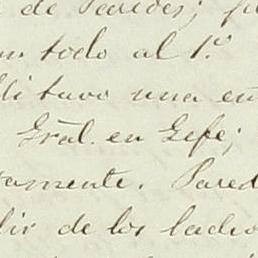 de Paredes; p
n todo al 1.º
li tuvo una en
Gral. en Gefe;
tamente. Pared
lir de los lados